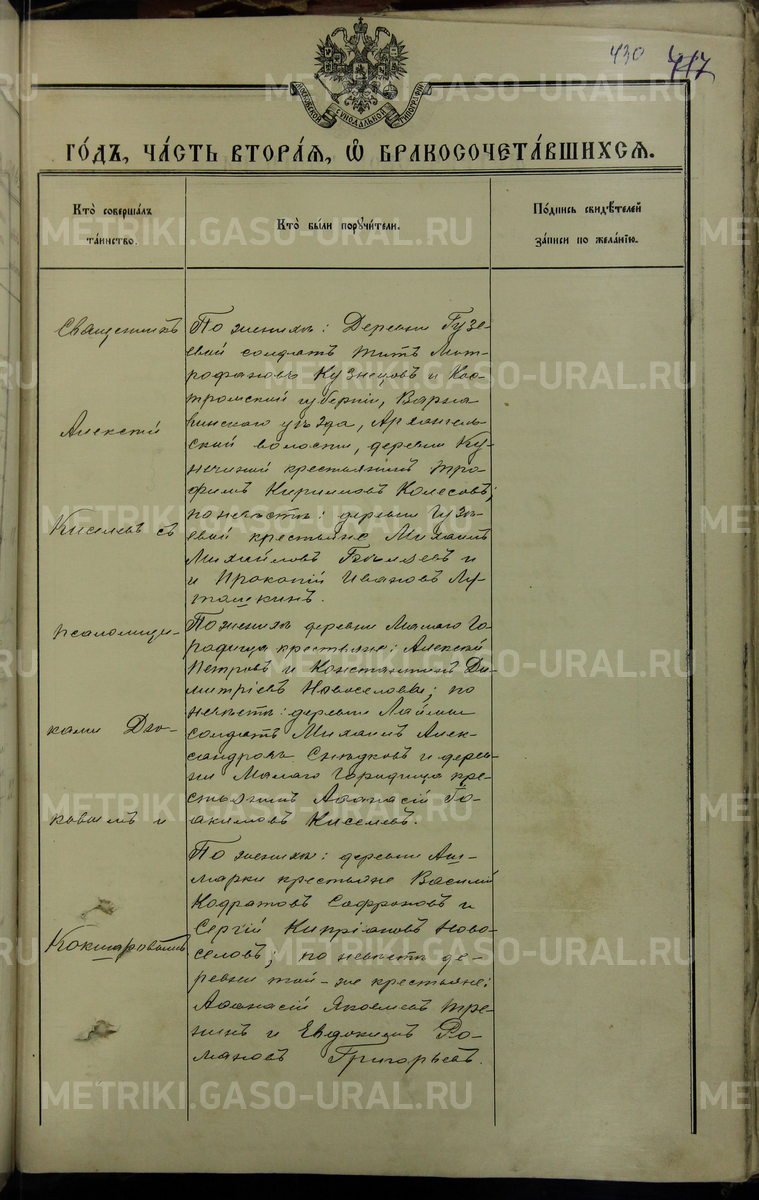 430 417
МОСКОВСКОЙ СУНОДАЛЬНОЙ ТИПОГРАФІИ
ГО́ДЪ, ЧА́СТЬ ВТОРА́Я, Ѡ БРАКОСОЧЕТА́ВШИХСЯ.
Кто̀ соверша́лъ
та́инство.
Кто̀ бы́ли поручи́тели.
По́дпись свидѣ́телей
за́писи по жела́нію.
Священникъ
Алексій
Киселевъ съ
псаломщи-
ками
ковымъ и
Кокшаровымъ
По женихѣ: Деревни Гузе-
евой солдатъ Титъ Мит-
рофановъ Кузнецовъ и Кос-
тромской губерніи, Варна-
винскаго уѣзда, Архангель-
ской волости, деревни
крестьянинъ Тро-
фимъ Кириловъ Колесовъ;
по невѣстѣ: деревни Гузе-
евой крестьяне Михаилъ
Михайловъ и
и Прокопій Ивановъ Лу-
ташкинъ.
По женихѣ деревни Малаго Го-
родища крестьяне: Алексій
Петровъ и Константинъ Ди-
митріевъ Новоселовы; по
невѣстѣ: деревни
солдатъ Михаилъ Алек-
сандровъ и дерев-
ни Малаго Городища кре-
стьянинъ Аѳанасій Іо-
акимовъ Киселевъ.
По женихѣ: деревни Аш-
марки крестьяне Василій
Кодратовъ Сафроновъ и
Сергій Кипріановъ Ново-
селовъ; по невѣстѣ де-
ревни той-же крестьяне:
Аѳанасій Яковлевъ Тре-
нинъ и Евдокимъ Ро-
мановъ Григорьевъ.
METRIKI.GASO-URAL.RU